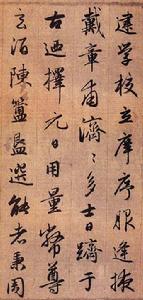 建學校立庠序服逢掖
戴章甫濟〻多士日躋于
古迺擇元日用量幣尊
玄酒陳簠簋選能者秉周